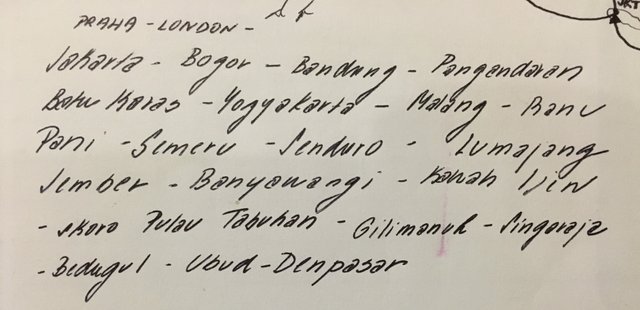 PRAHA - LONDON -
JKT
Jakarta - Bogor - Bandung - Pangandaran
Batu Karas - Yogyakarta - Malang - Ranu
Pani - Semeru - Senduro - Lumajang
Jember - Banyawangi - Kawah Ijin
- skoro Pulau Tabuhan - Gilimanuk - Singaraja
- Bedugul - Ubud - Denpasar